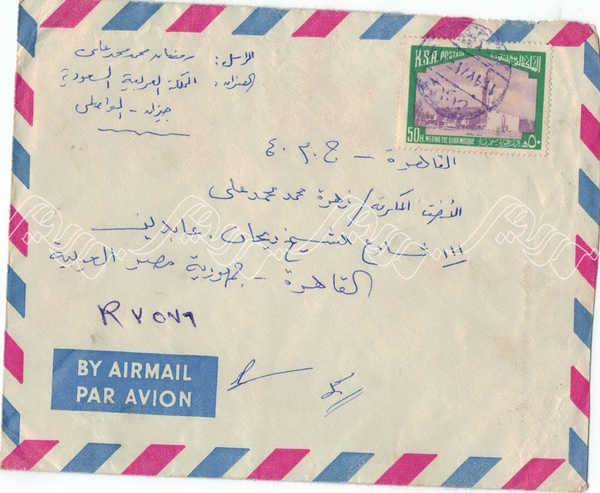 الراسل: رمضان محمد محمد على
العنوان: المملكة العربية السعودية
جيزان -
K.S.A. POSTAGE
50H. MEDINA THE QUBA MOSQUE ٥٠هـ
القاهرة - ج.م.ع
الأخت المكرمة / زهرة محمد محمد على
١١١ شارع الشيخ ريحان، عابدين
القاهرة - جمهورية مصر العربية
R ٧٥٧٩
BY AIRMAIL
PAR AVION